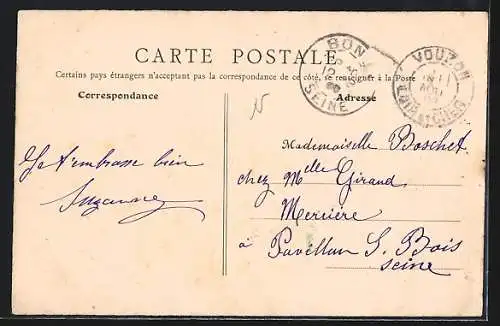 CARTE POSTALE
Certains pays étrangers n'acceptant pas la correspondance de ce côté, se renseigner à la Poste
Correspondance
Adresse
BON
SEINE
VOUZON
LOIR-ET-CHER
Mademoiselle Boschet
chez Mlle Giraud
Mercière
à Pavillon S. Bois
Seine
Je t'embrasse bien
Suzanne